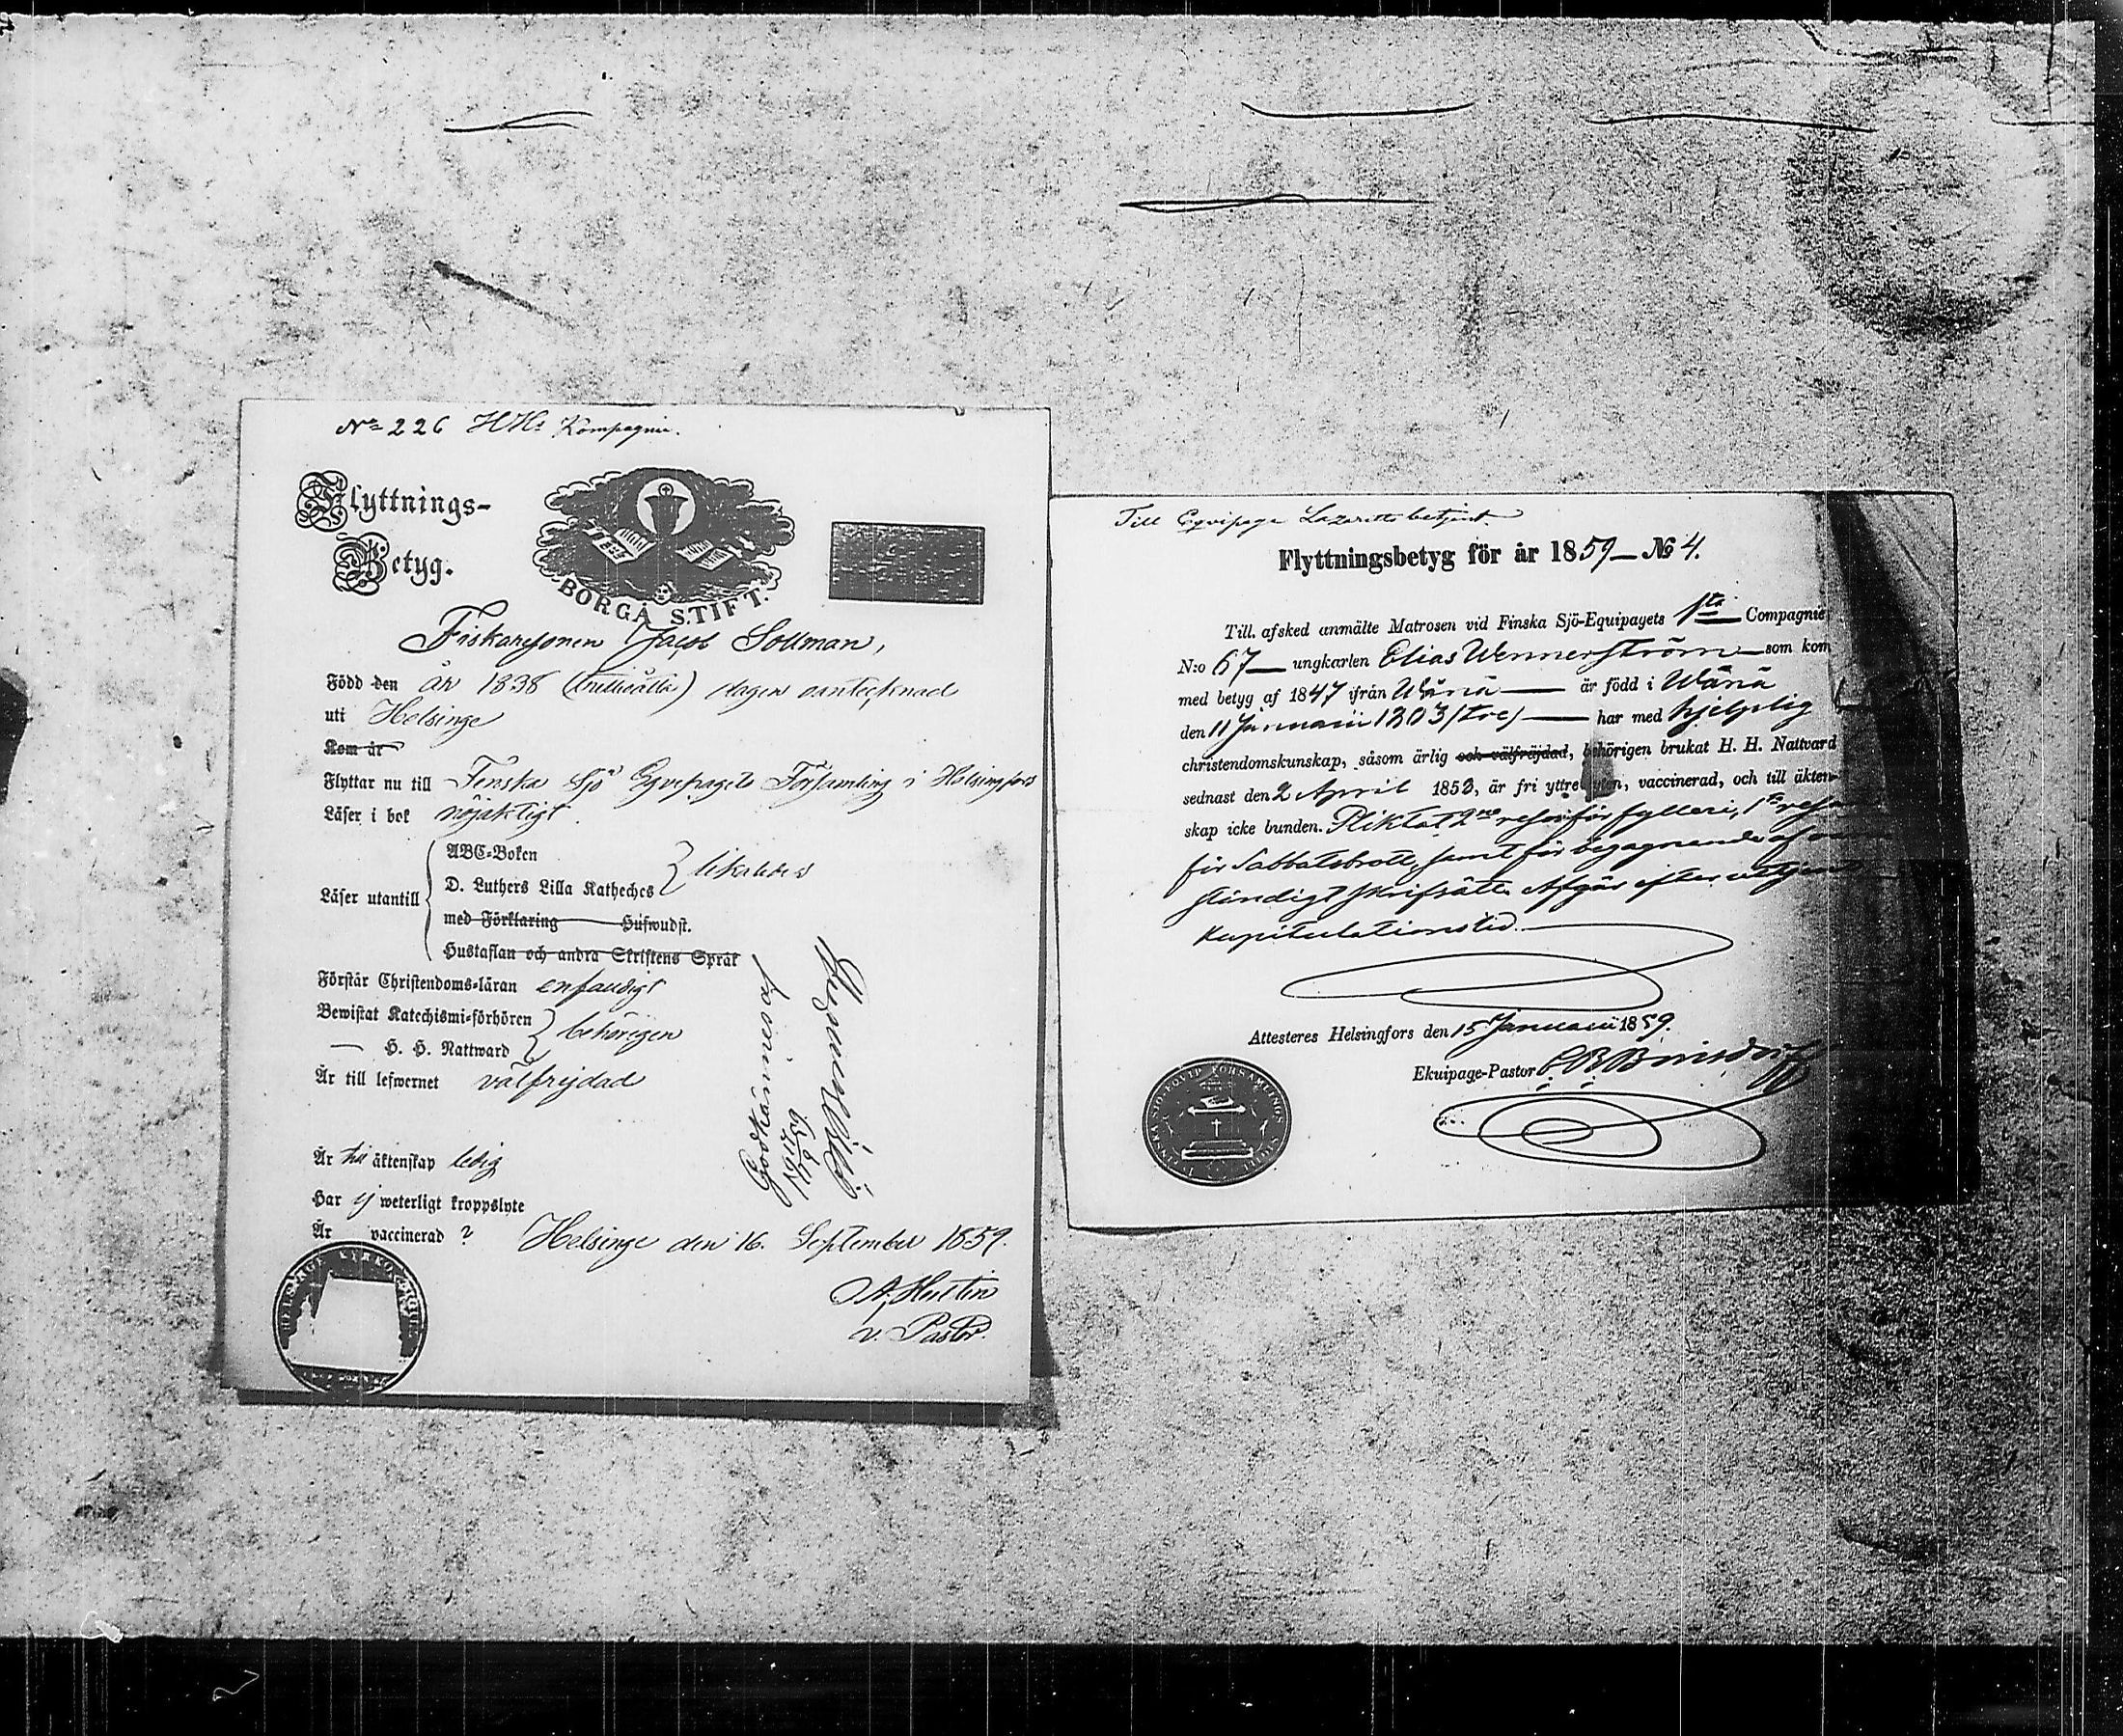 No 226 Kompagnie.
Flyttnings-
Betyg.
BORGÅ STIFT.
Fiskaresonen Jacob Sollman,
Född den år 1838 (trettioåtta) dagen oantecknad
uti Helsinge
Kom år
Flyttar nu till Finska Sjö Eqvipagets Församling i Helsingfors
Läser i bok nöjaktigt
ABC-Boken
D. Luthers Lilla Katheches likaledes
Läser utantill
med Förklaring Hufwudst.
Hustaflan och andra Skriftens Språk
Förstår Christendoms-läran enfaldigt
Bewistat Katechismi-förhören
H. H. Nattward behörigen
Är till lefwernet välfrejdad
Är till äktenskap ledig
Har ej weterligt kroppslyte
Är vaccinerad ?
Helsinge den 16. September 1859.
v. Pastor.
Godkännes af
Till Eqvipage Lazaretts betjent.
Flyttningsbetyg för år 1859 — No 4.
Till. afsked anmälte Matrosen vid Finska Sjö-Equipagets 1sta Compagnie
N:o 67 — ungkarlen Elias Wennerström — som kom
med betyg af 1847 ifrån Wånå — är född i Wånå
den 11 Januarii 1803 (tre) — har med hjelplig
christendomskunskap, såsom ärlig och välfräjdad, behörigen brukat H. H. Nattvard
sednast den 2 April 1858, är fri yttre lyten, vaccinerad, och till äkten-
skap icke bunden. Pliktat 2ne resor för fylleri, 1sta resan
för Sabbatsbrott, samt för begagnande af
ständigt skrifsätt. Afgår efter uttjent
Kapitulationstid.
Attesteres Helsingfors den 15 Januarii 1859.
Ekuipage-Pastor